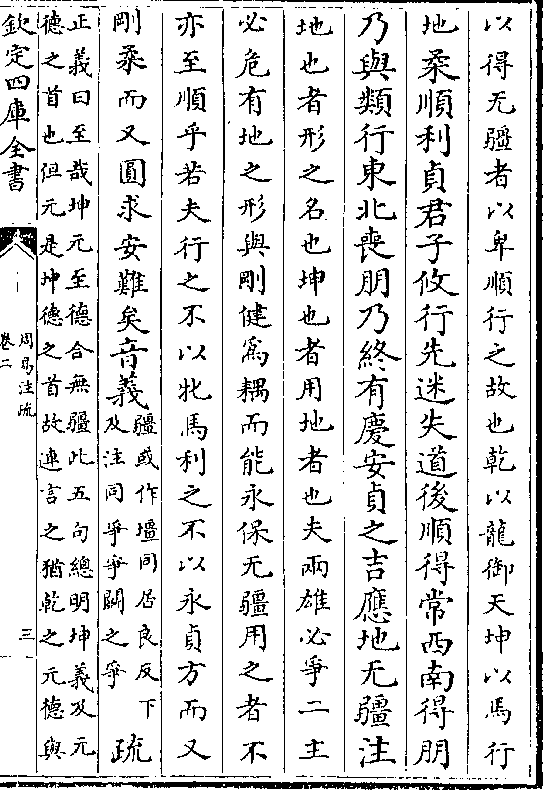 以得无疆者以卑順行之故也乾以龍御天坤以馬行
地柔順利貞君子攸行先迷失道後順得常西南得朋
乃與類行東北喪朋乃終有慶安貞之吉應地无疆注
地也者形之名也坤也者用地者也夫兩雄必爭二主
必危有地之形與剛健為耦而能永保无疆用之者不
亦至順乎若夫行之不以牝馬利之不以永貞方而又
剛柔而又圓求安難矣音義疆或作壃同居良反下及注同爭爭鬭之爭疏
正義曰至哉坤元至德合無疆此五句總明坤義及元
德之首也但元是坤德之首故連言之猶乾之元德與
欽定四庫全書
周易注疏
卷二
三